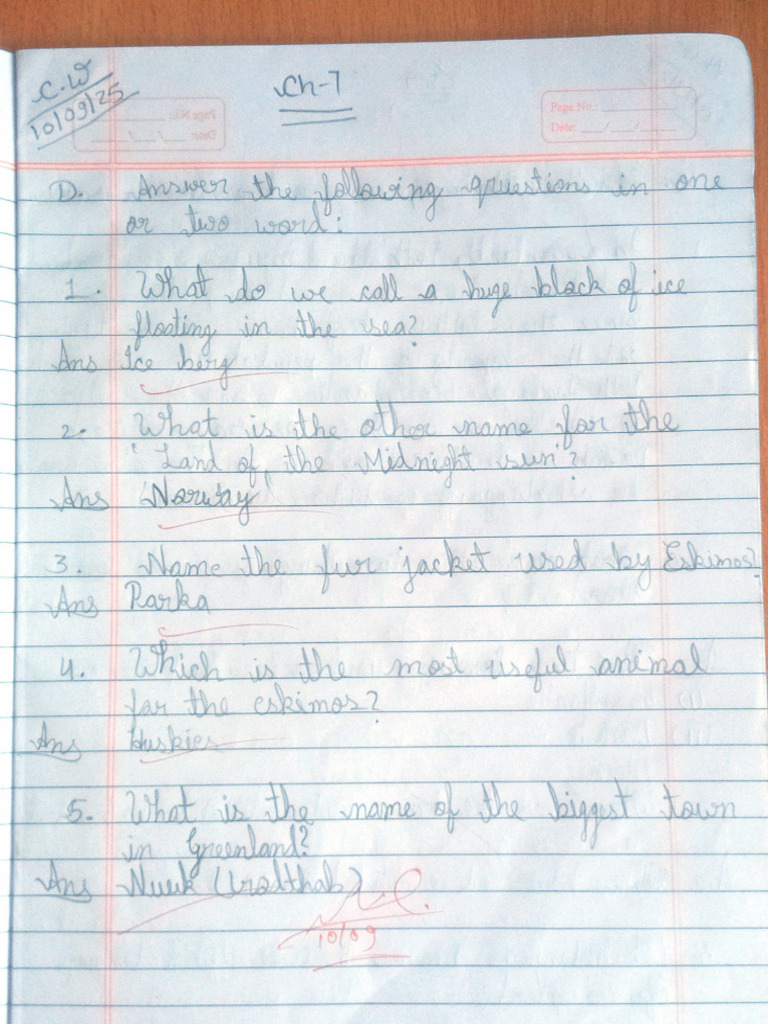 C.W
10/09/25
Ch-7
Page No.:
Date: __/__/__
D. Answer the following questions in one
or two word:
1. What do we call a huge block of ice
floating in the sea?
Ans Ice berg
2. What is the other name for the
'Land of the Midnight sun'?
Ans 'Norway'
3. Name the fur jacket used by Eskimos?
Ans Parka
4. Which is the most useful animal
for the eskimos?
Ans Huskies
5. What is the name of the biggest town
in Greenland?
Ans Nuuk
10/09